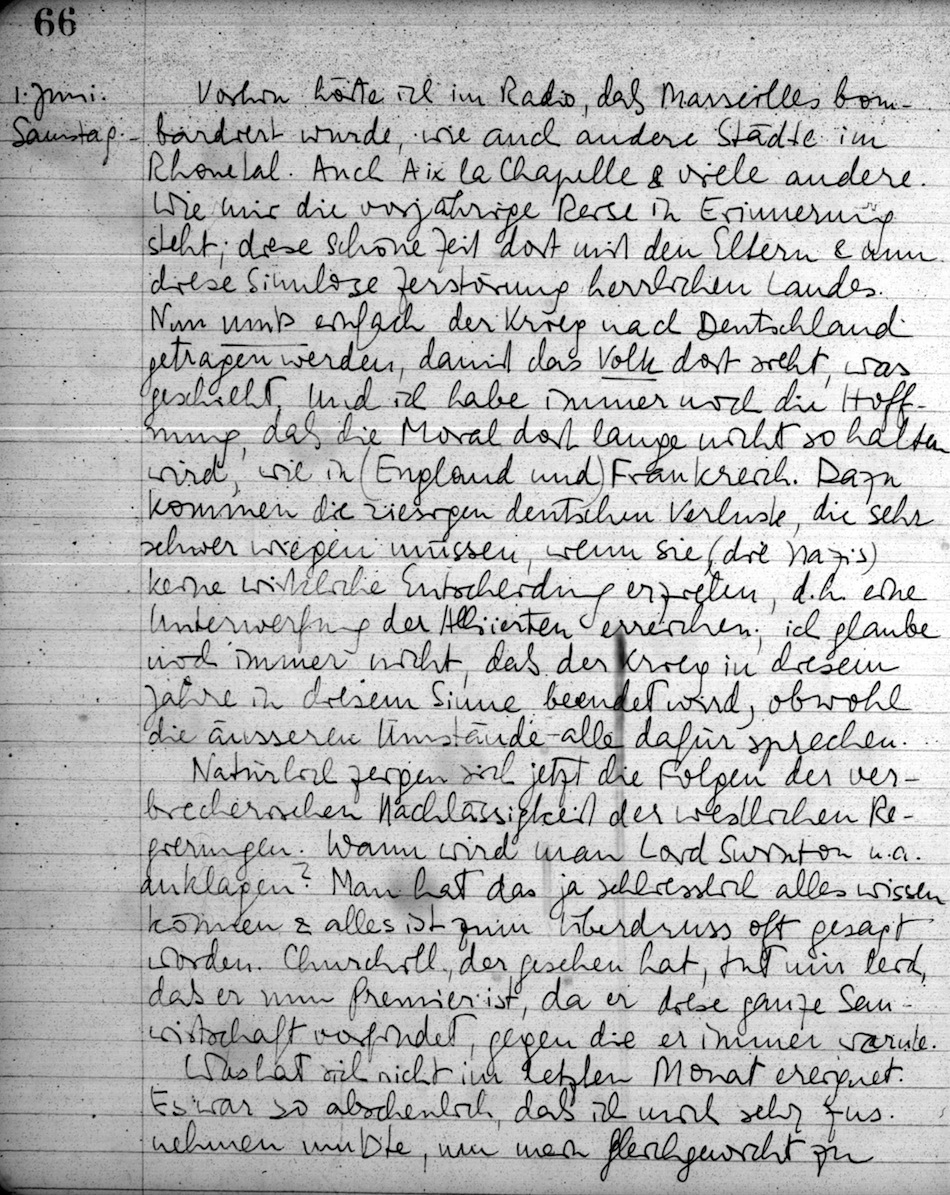 66
1. Juni.
Samstag.-
Vorhin hörte ich im Radio, daß Marseilles bom-
bardiert wurde, wie auch andere Städte im
Rhonetal. Auch Aix la Chapelle & viele andere.
Wie mir die vorjährige Reise in Erinnerung
steht; diese schöne Zeit dort mit den Eltern & nun
diese sinnlose Zerstörung herrlichen Landes.
Nun muß einfach der Krieg nach Deutschland
getragen werden, damit das Volk dort sieht, was
geschieht. Und ich habe immer noch die Hoff-
nung, daß die Moral dort lange nicht so halten
wird, wie in (England und) Frankreich. Dazu
kommen die riesigen deutschen Verluste, die sehr
schwer wiegen müssen, wenn sie (die Nazis)
keine wirkliche Entscheidung erzielen, d.h. eine
Unterwerfung der Alliierten erreichen; ich glaube
noch immer nicht, daß der Krieg in diesem
Jahre in diesem Sinne beendet wird, obwohl
die äusseren Umstände alle dafür sprechen.
Natürlich zeigen sich jetzt die Folgen der ver-
brecherischen Nachlässigkeit der westlichen Re-
gierungen. Wann wird man Lord Swinton u.a.
anklagen? Man hat das ja schliesslich alles wissen
können & alles ist zum Überdruss oft gesagt
worden. Churchill, der gesehen hat, tut mir leid,
daß er nun Premier ist, da er diese ganze Sau-
wirtschaft vorfindet, gegen die er immer warnte.
Was hat sich nicht im letzten Monat ereignet.
Es war so abscheulich, daß ich mich sehr zus.
nehmen mußte, um mein Gleichgewicht zu